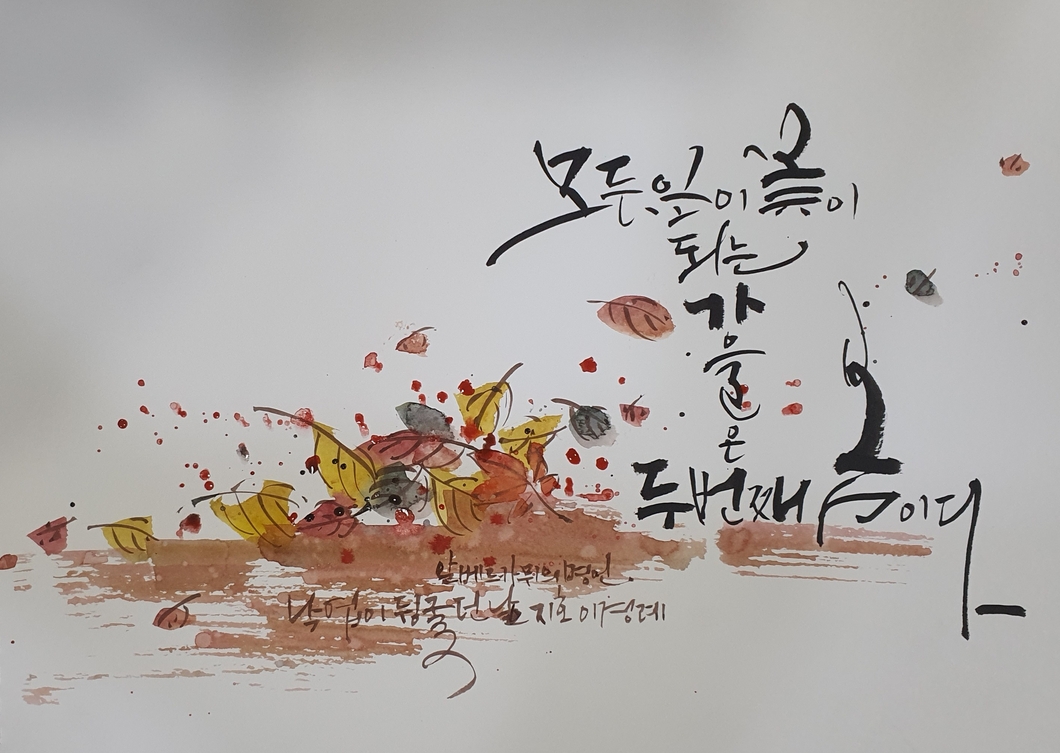 모두 잎이 꽃이
되는
가
을
은
두번째 봄이다
알베르카뮈의 명언.
낙엽이 뒹굴던 날 지호 이경례